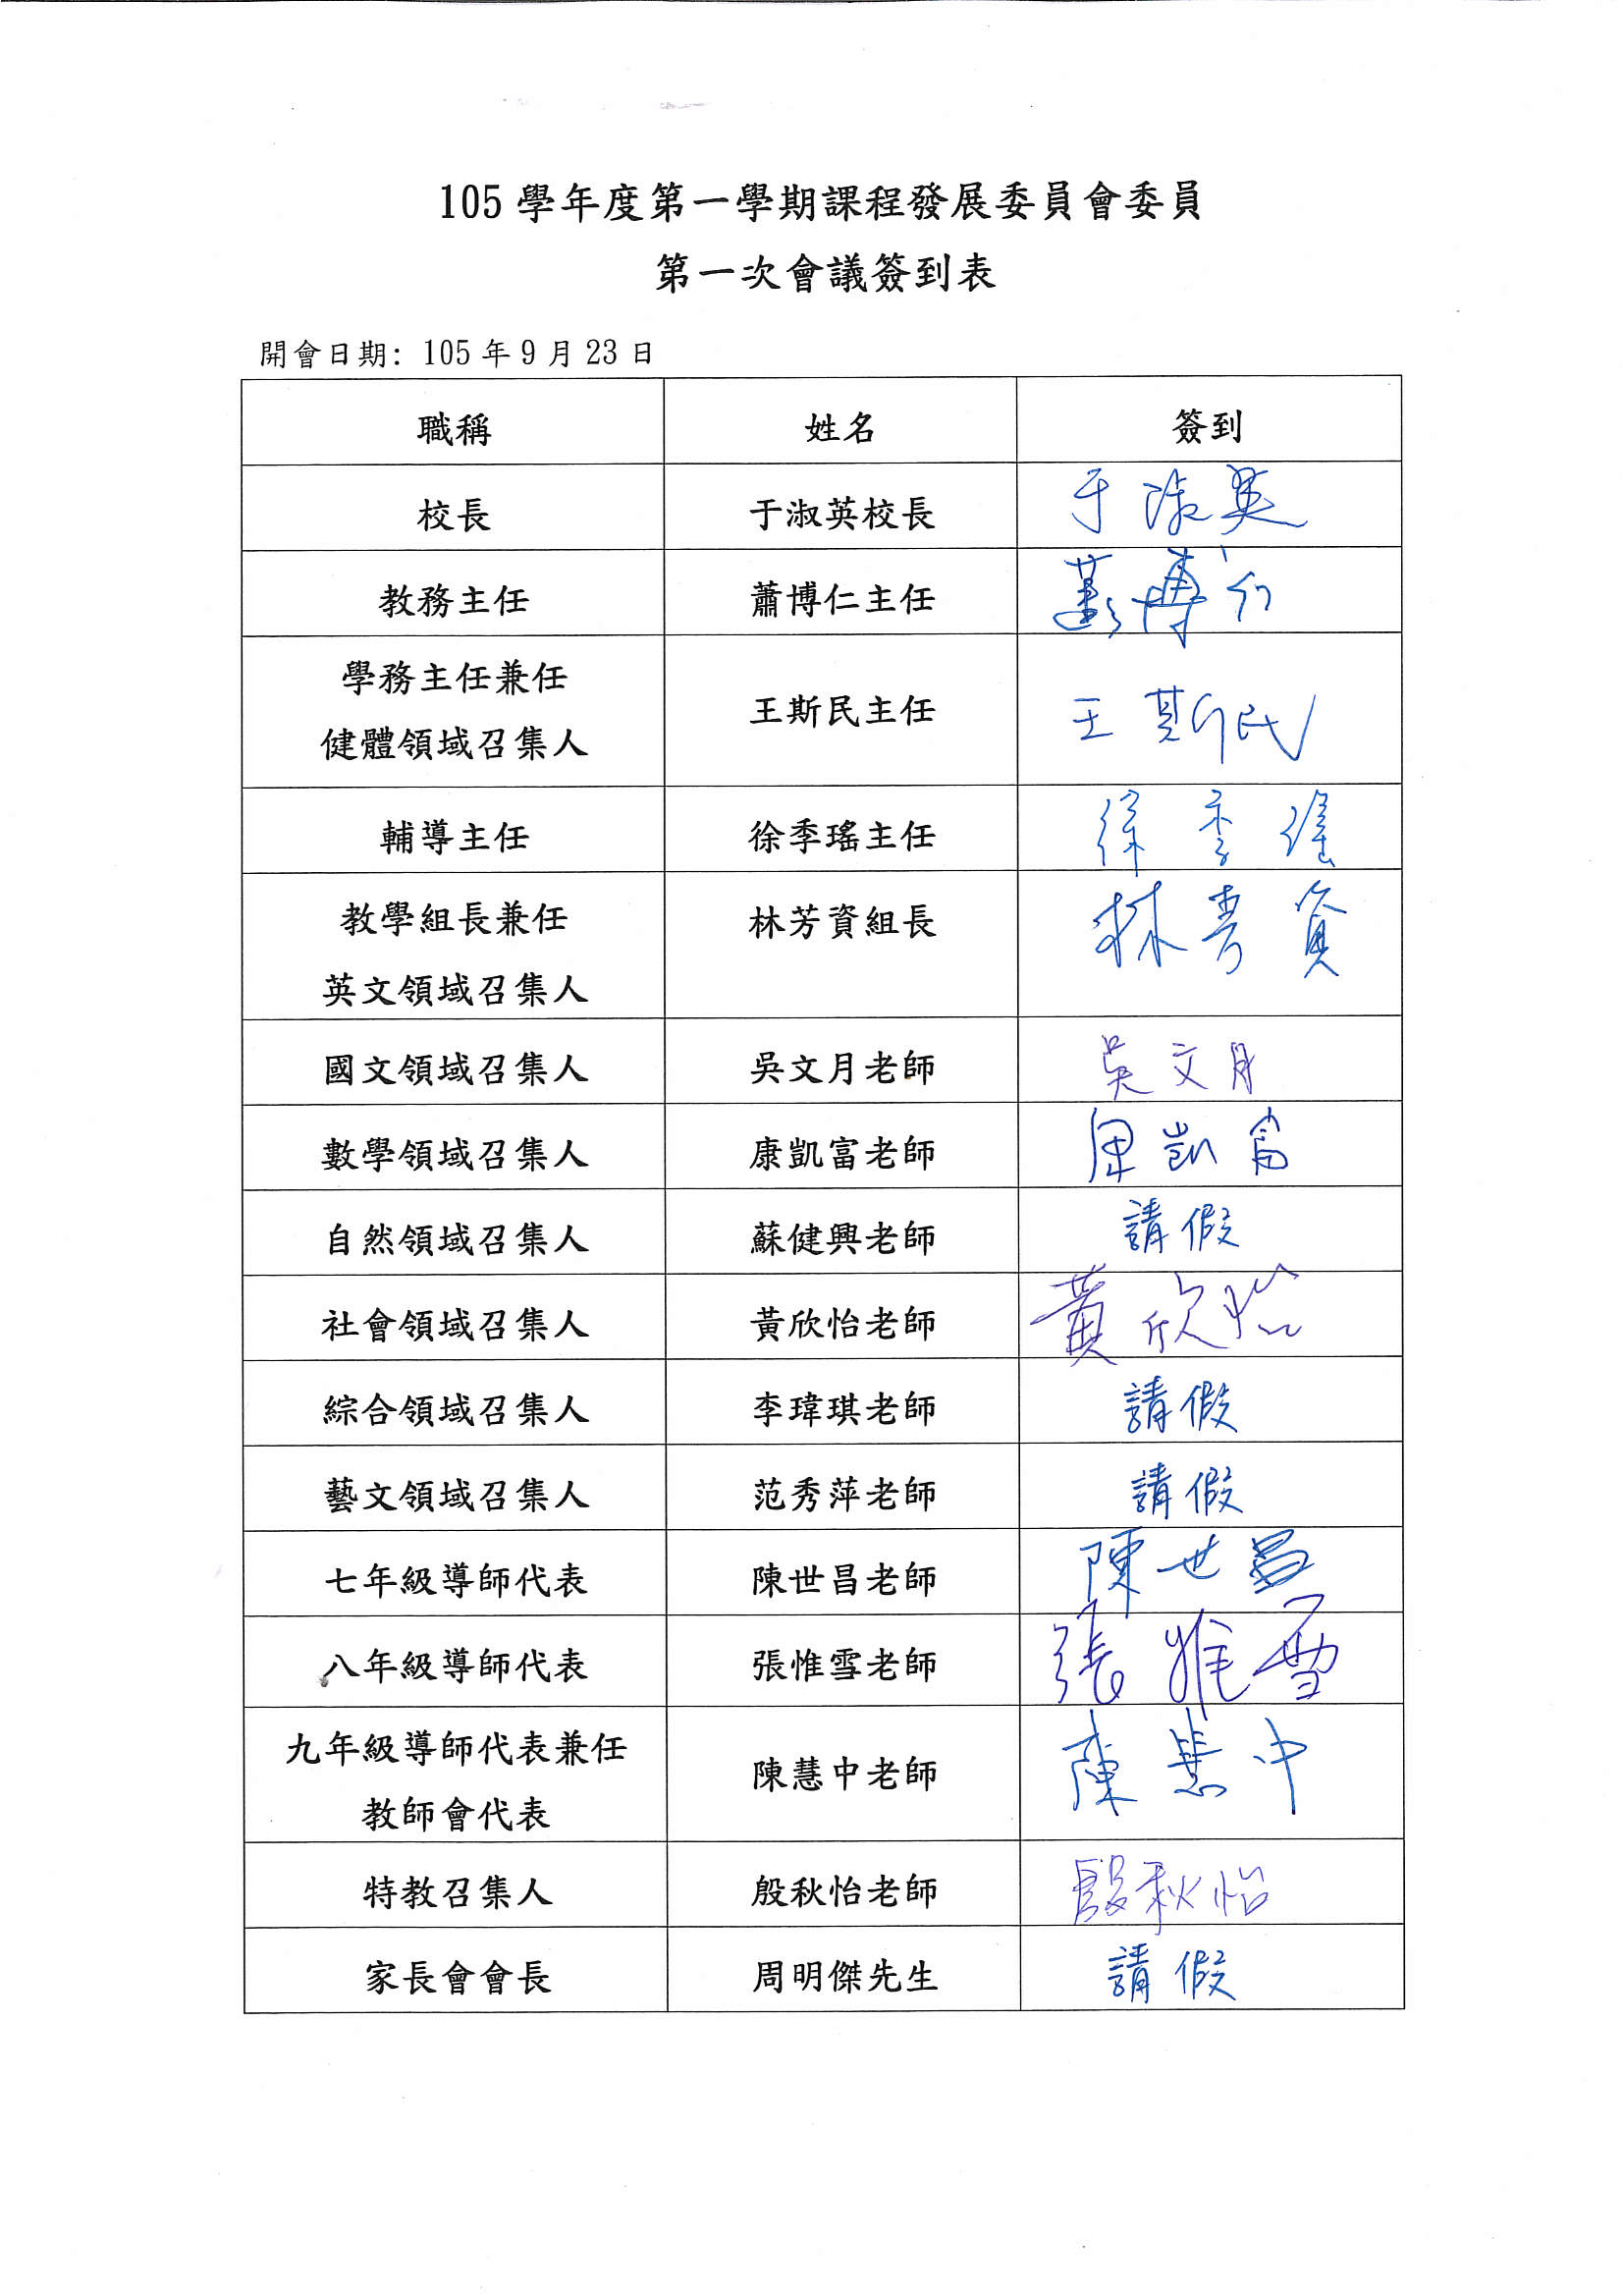 105 學年度第一學期課程發展委員會委員
第一次會議簽到表
開會日期: 105 年 9 月 23 日
職稱 姓名 簽到
校長 于淑英校長 于淑英
教務主任 蕭博仁主任 蕭博仁
學務主任兼任
健體領域召集人 王斯民主任 王斯民
輔導主任 徐季瑤主任 徐季瑤
教學組長兼任 林芳資組長 林芳資
英文領域召集人
國文領域召集人 吳文月老師 吳文月
數學領域召集人 康凱富老師 康凱富
自然領域召集人 蘇健興老師 請假
社會領域召集人 黃欣怡老師 黃欣怡
綜合領域召集人 李瑋琪老師 請假
藝文領域召集人 范秀萍老師 請假
七年級導師代表 陳世昌老師 陳世昌
八年級導師代表 張惟雪老師 張惟雪
九年級導師代表兼任
教師會代表 陳慧中老師 陳慧中
特教召集人 殷秋怡老師 殷秋怡
家長會會長 周明傑先生 請假